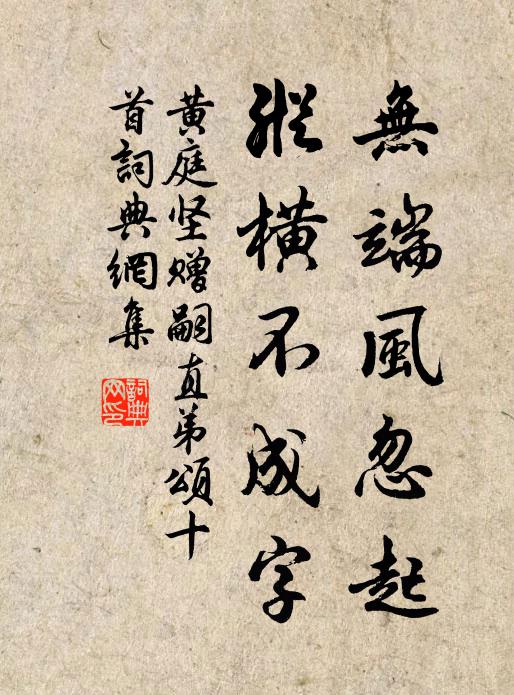 無端風忽起
縱橫不成字
黃庭坚贈嗣直弟頌十
首詞典網集
詞典
网印